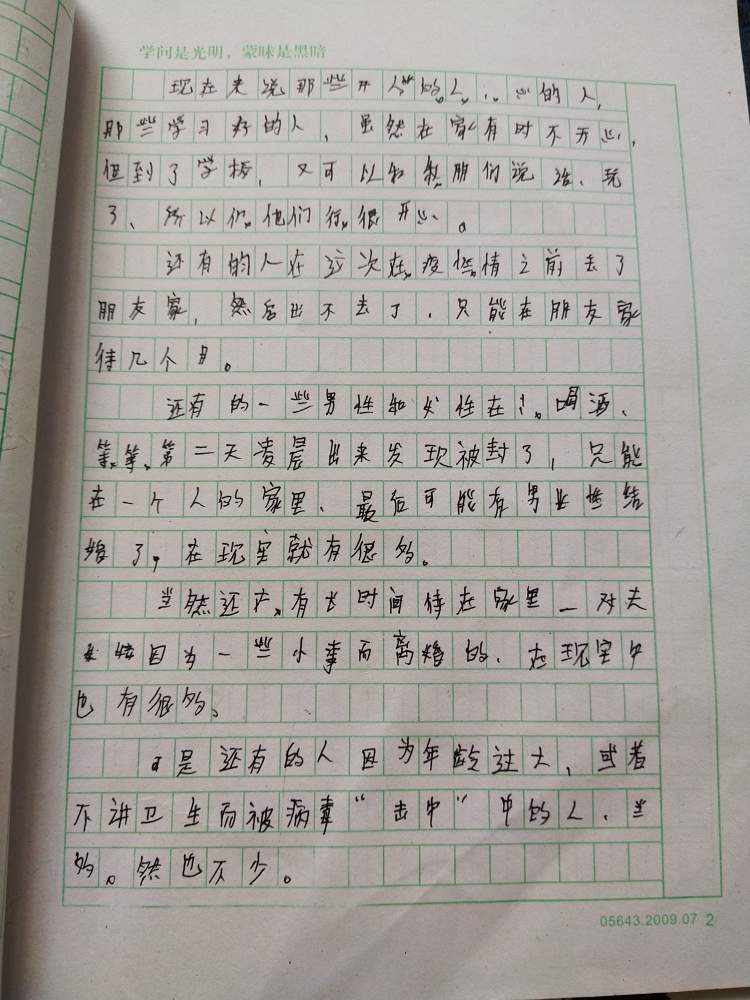 学问是光明，蒙昧是黑暗
现在来说那些开心的人，
那些学习好的人，虽然在家有时不开心，
但到了学校，又可以和朋们说话、玩
了、所以他们很开心。
还有的人在这次疫情之前去了
朋友家，然后出不去了，只能在朋友家
待几个月。
还有的一些男性和女性在喝酒、
等等、第二天凌晨出来发现被封了，只能
在一个人的家里、最后可能有男女性结
婚了，在现实就有很多。
当然还有长时间待在家里一对夫
妻因为一些小事而离婚的、在现实中
也有很多。
是还有的人因为年龄过大，或者
不讲卫生而被病毒“击中”中的人、当
然也不少。
05643.2009.07 2